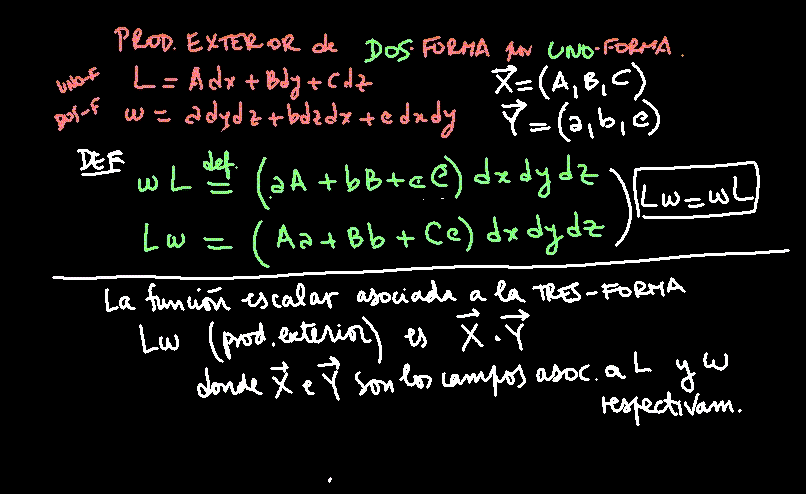 PROD. EXTERIOR de DOS-FORMA por UNO-FORMA.
UNO-F L = Adx + Bdy + Cdz X⃗ = (A, B, C)
DOS-F ω = adydz + bdzdx + cdxdy Y⃗ = (a, b, c)
DEF
ωL def= (aA + bB + cC) dxdydz
Lω = (Aa + Bb + Cc) dxdydz
Lω = ωL
La función escalar asociada a la TRES-FORMA
Lω (prod. exterior) es X⃗ · Y⃗
donde X⃗ e Y⃗ son los campos asoc. a L y ω
respectivam.